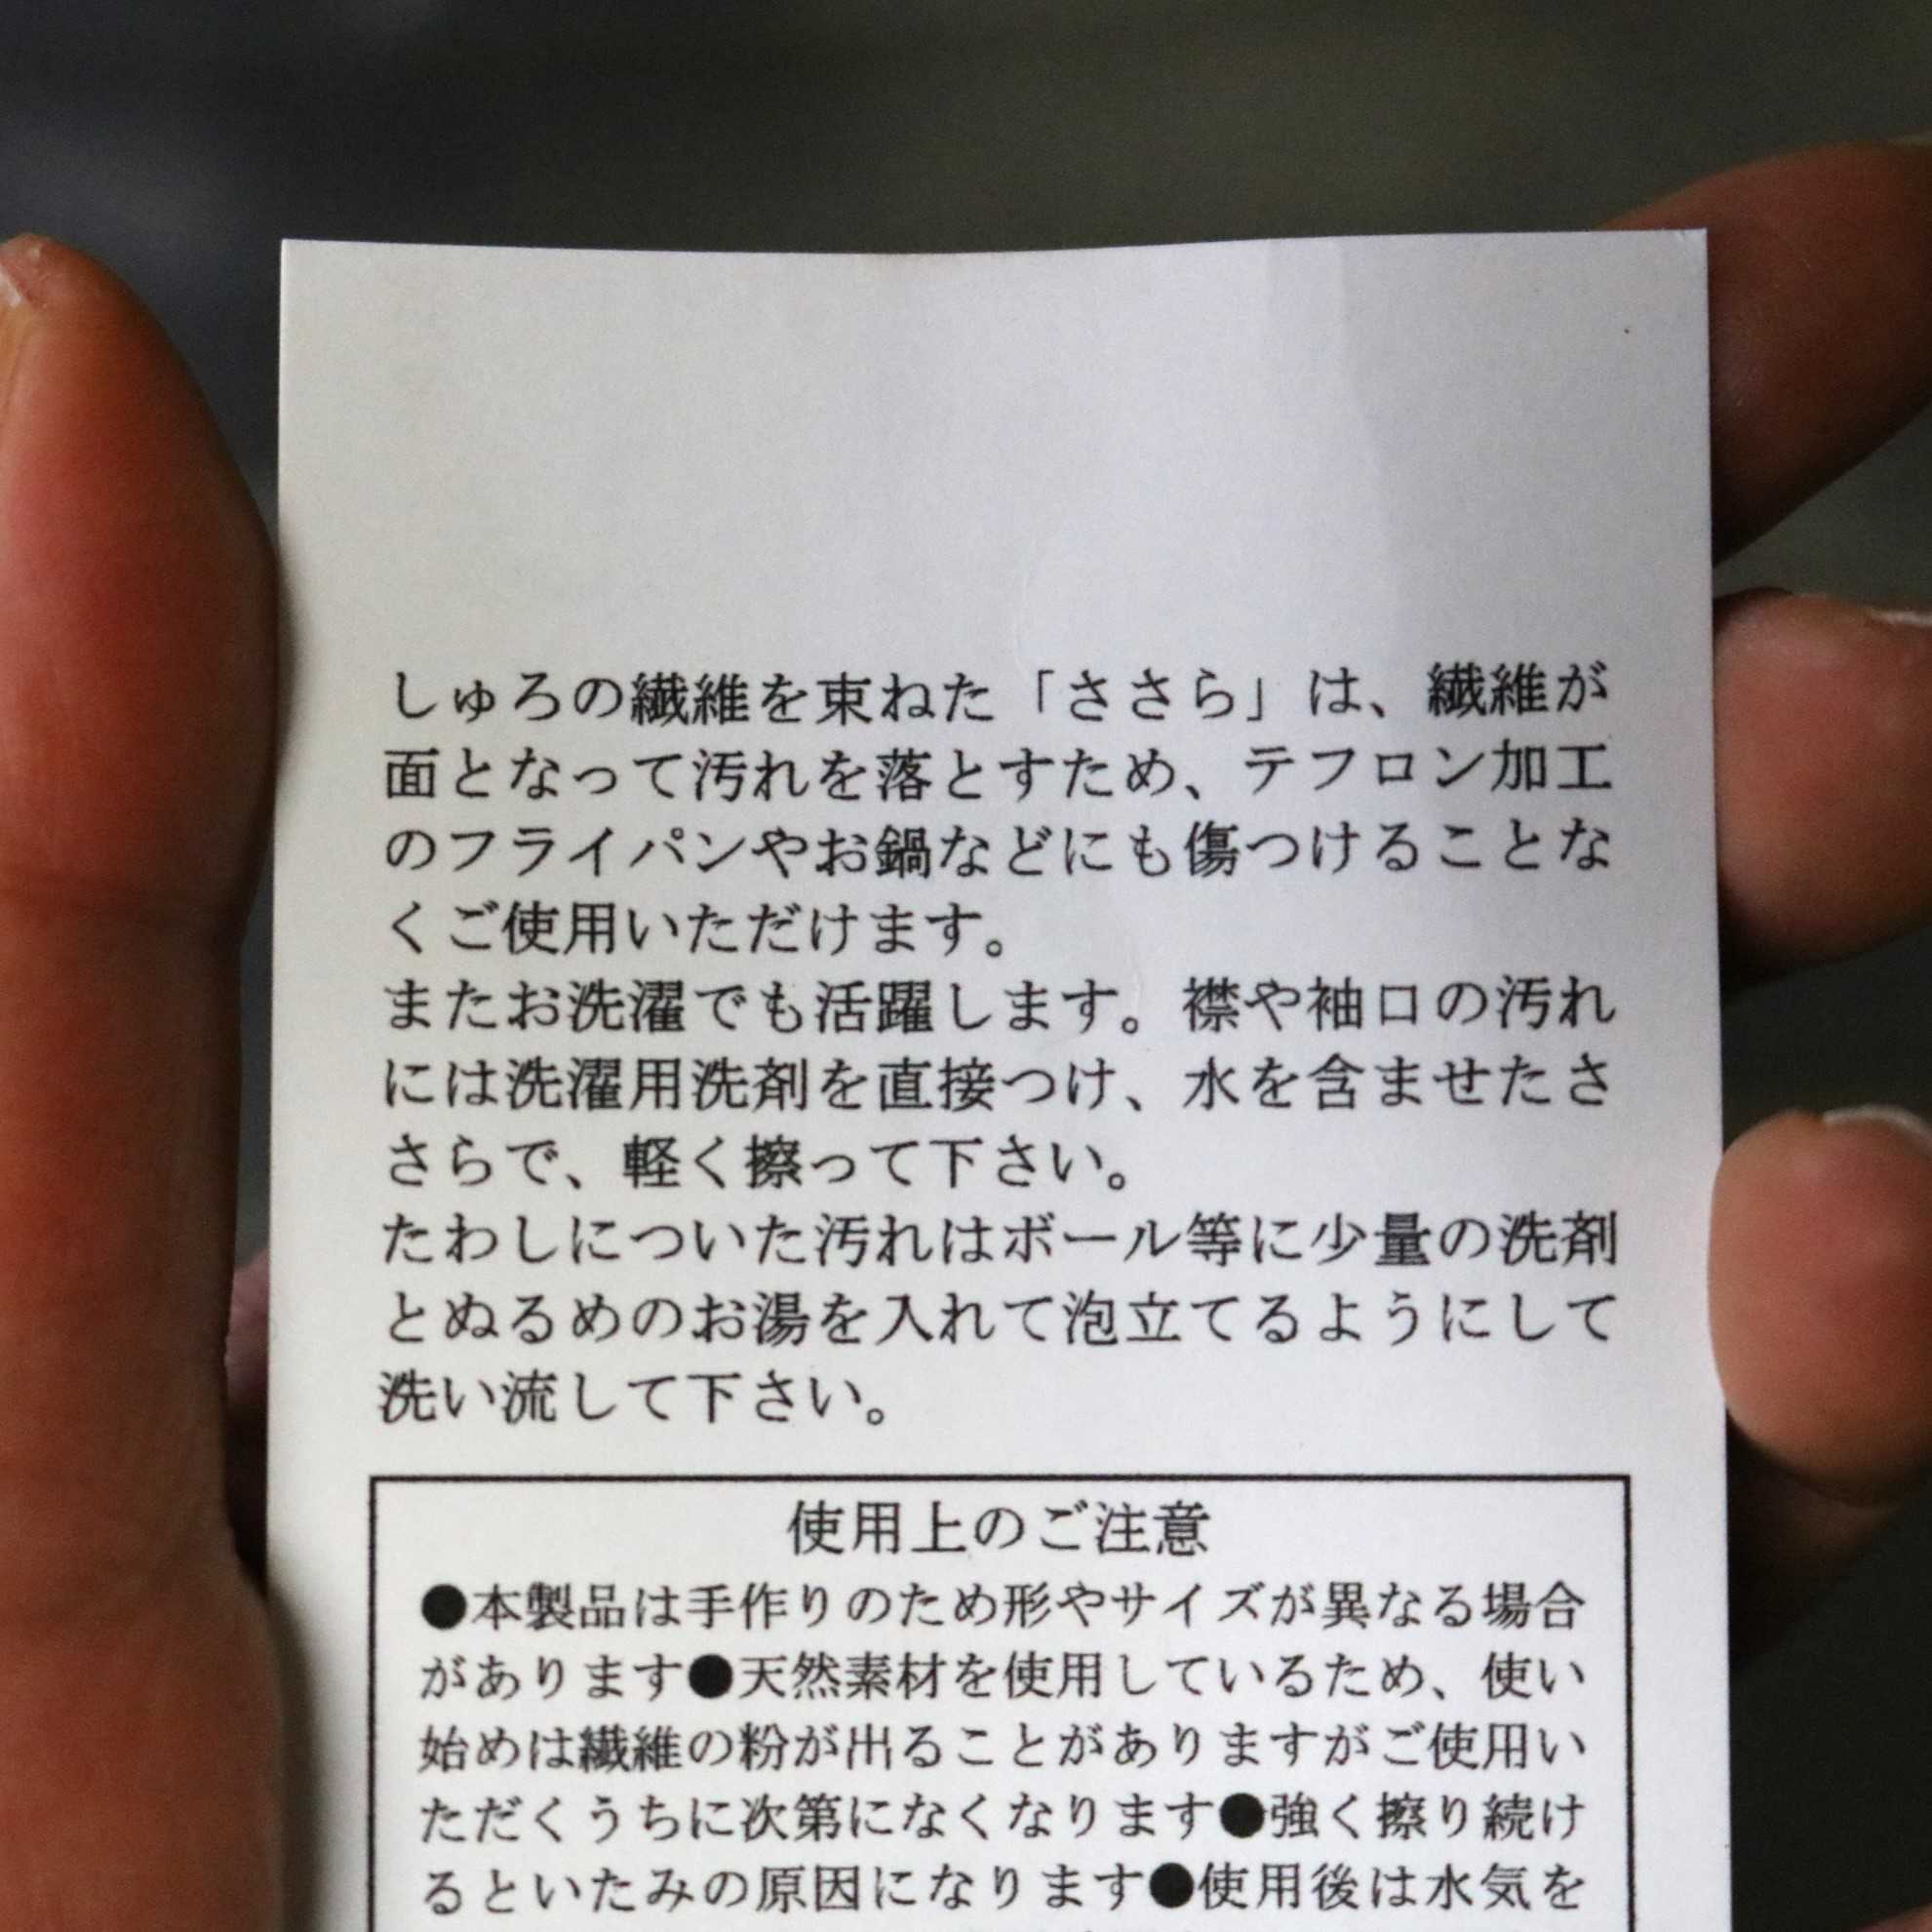 しゅろの繊維を束ねた「ささら」は、繊維が
面となって汚れを落とすため、テフロン加工
のフライパンやお鍋などにも傷つけることな
くご使用いただけます。
またお洗濯でも活躍します。襟や袖口の汚れ
には洗濯用洗剤を直接つけ、水を含ませたさ
さらで、軽く擦って下さい。
たわしについた汚れはボール等に少量の洗剤
とぬるめのお湯を入れて泡立てるようにして
洗い流して下さい。
使用上のご注意
●本製品は手作りのため形やサイズが異なる場合
があります●天然素材を使用しているため、使い
始めは繊維の粉が出ることがありますがご使用い
ただくうちに次第になくなります●強く擦り続け
るといたみの原因になります●使用後は水気を